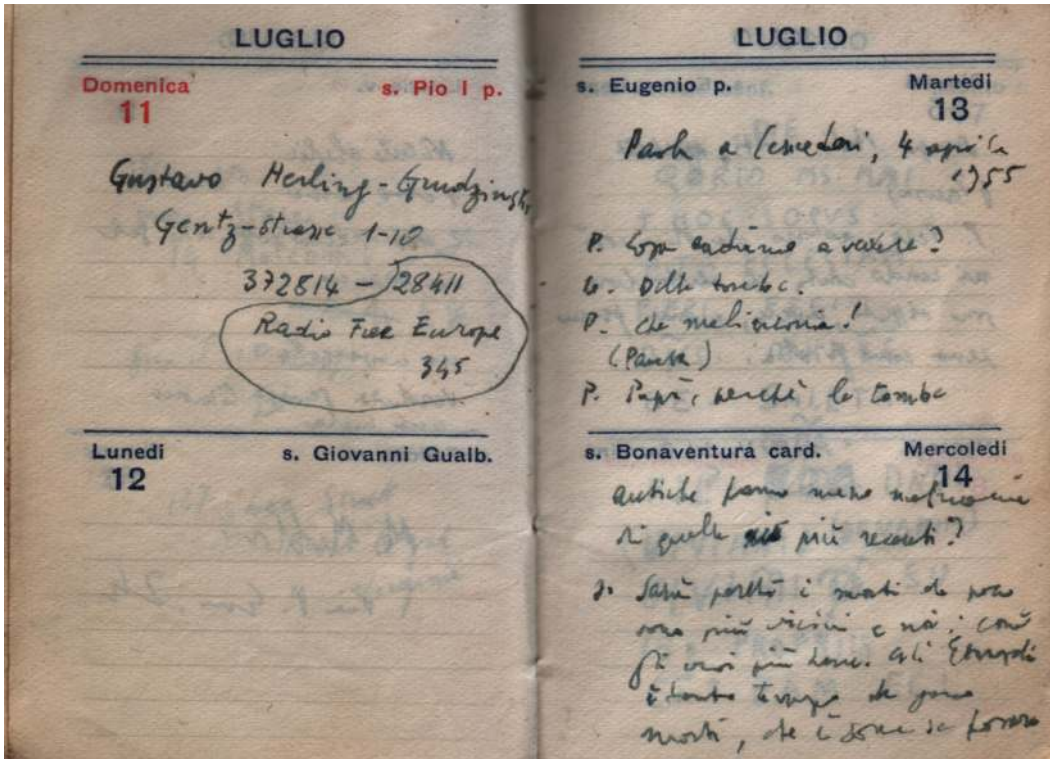 LUGLIO
Domenica s. Pio I p.
11
Gustavo Herling-Grudzinski
Gentz-strasse 1-10
372814 - 28411
Radio Free Europe
345
Lunedi s. Giovanni Gualb.
12
LUGLIO
s. Eugenio p. Martedi
13
a Cerveteri, 4 aprile
1955
P. andiamo a vedere?
Delle tombe.
P. Che malinconia!
(Pausa)
P. Papà, perchè le tombe
s. Bonaventura card. Mercoledi
14
antiche fanno meno malinconia
di quelle più recenti?
Sarà perchè i morti da poco
sono più vicini a noi,
più bene. Gli Etruschi
è tanto tempo che sono
morti, che è come se fossero